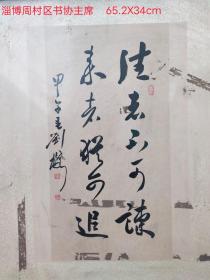 淄博周村区书协主席 65.2X34cm
往者不可谏
来者犹可追
甲午夏刘